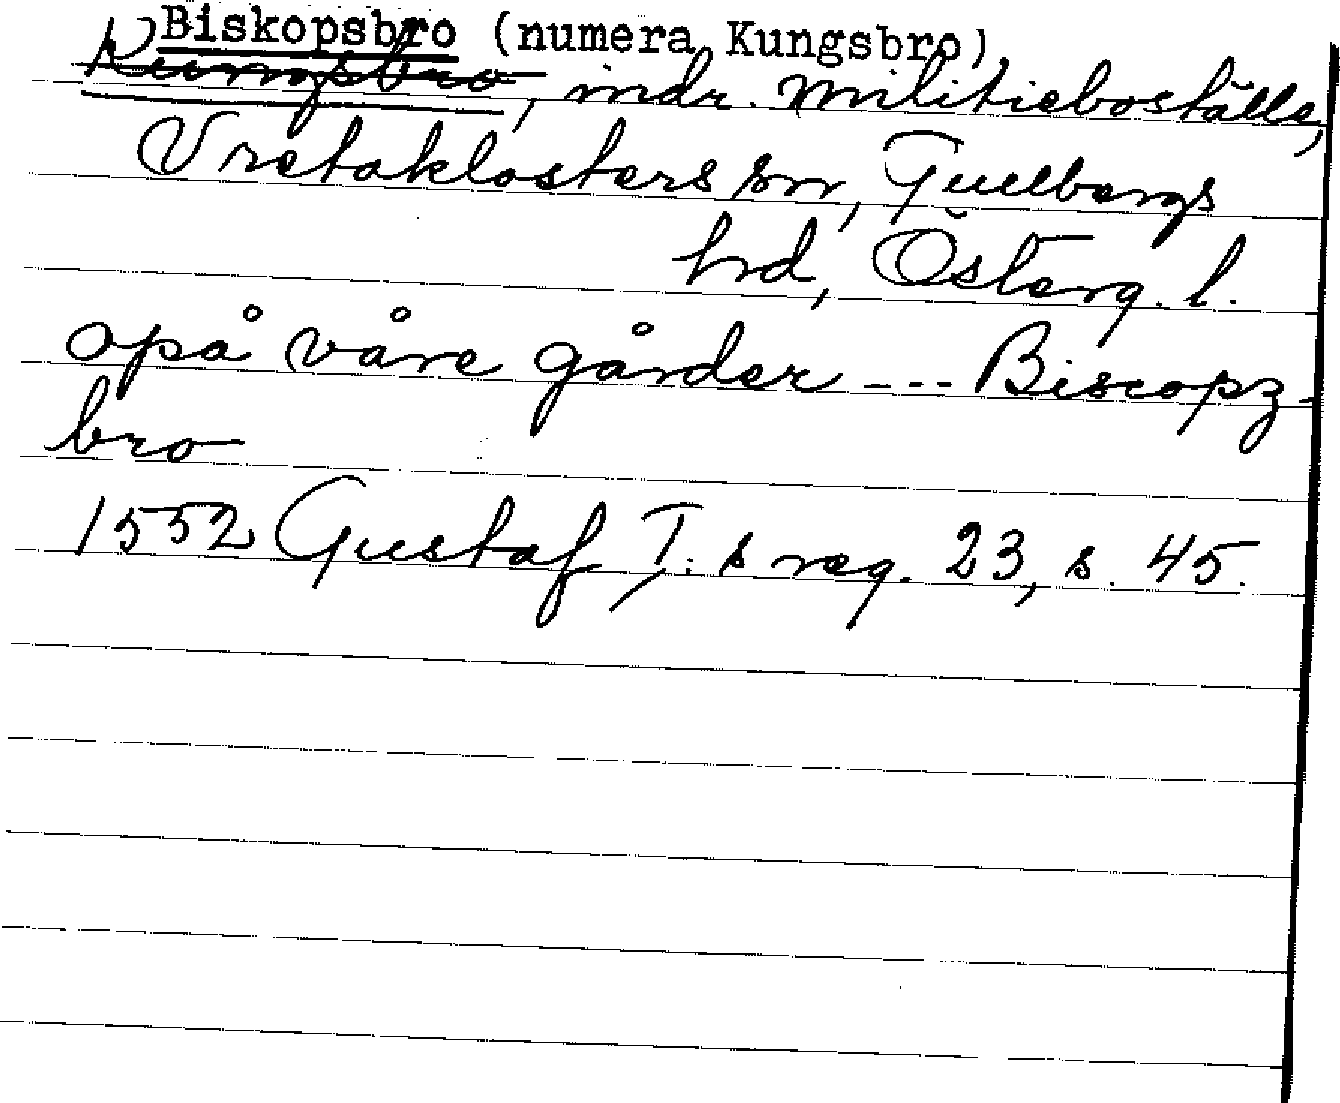 Biskopsbro (numera Kungsbro)
Kungsbro, indr. militieboställe,
Vretaklosters sn, Gullbergs
hrd, Österg. l.
opå våre gårder --- Biscopz-
bro
1552 Gustaf I:s reg. 23, s. 45.